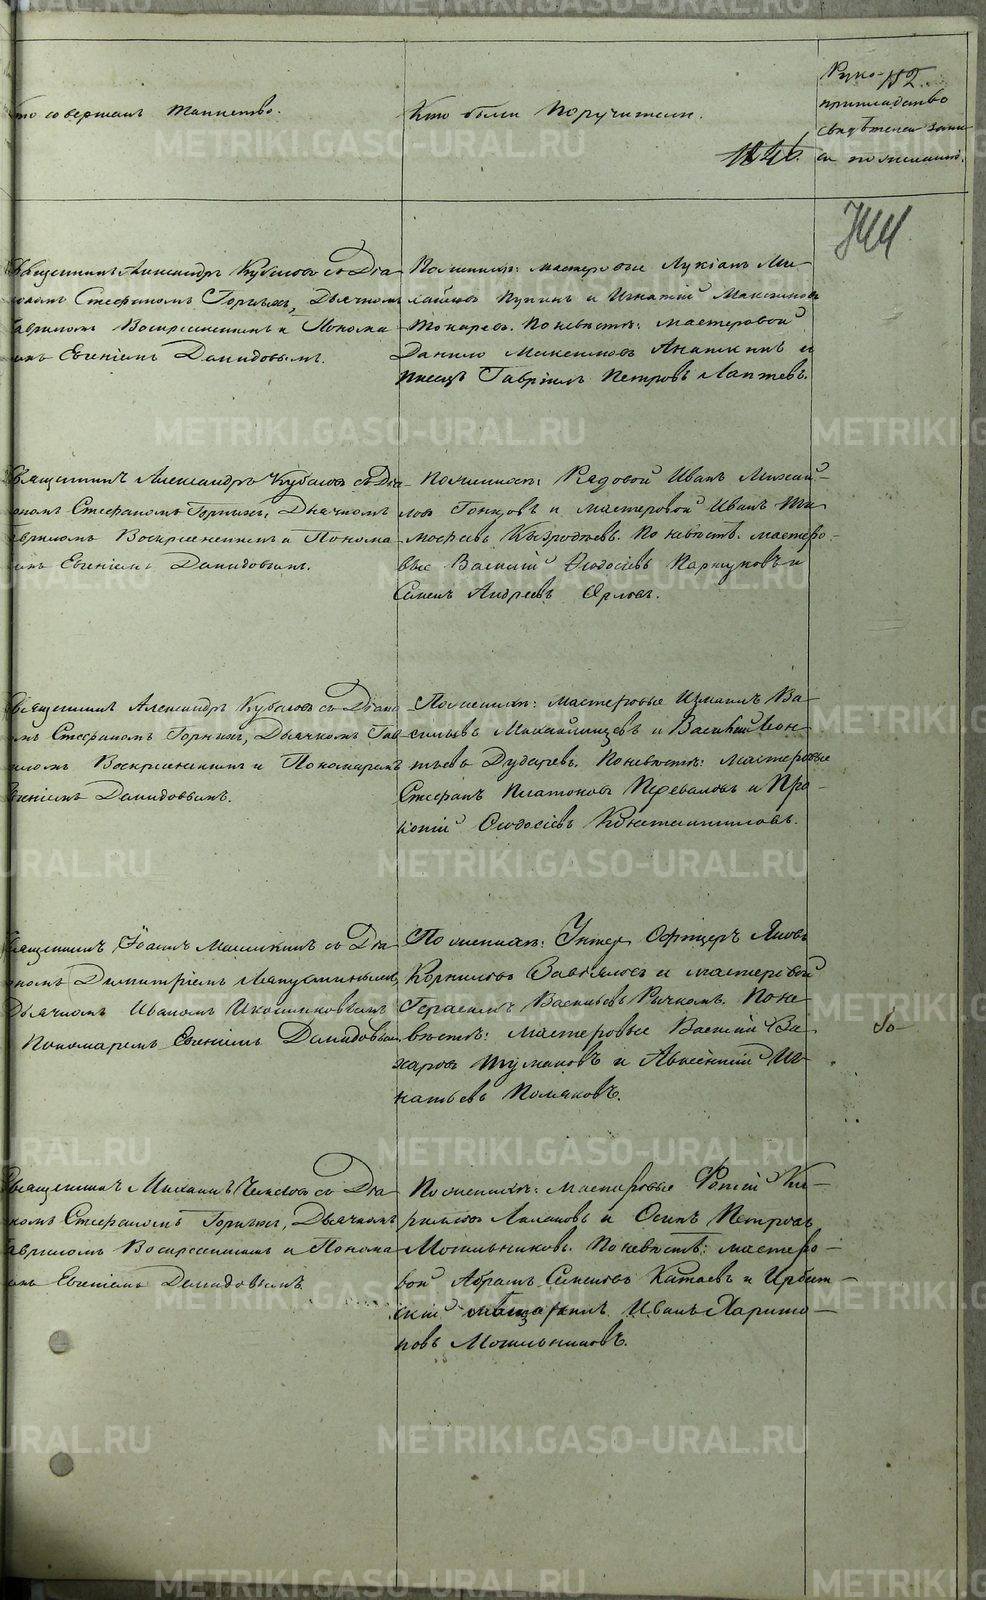 то совершалъ таинство.
Кто были поручители.
152
Руко-
прикладство
свидѣтелей запи-
си по желанію.
Священникъ Александръ Кубасовъ съ Діа-
кономъ Стефаномъ Горныхъ, Дьячкомъ
Гавріиломъ Воскресенскимъ и Понома
Евгеніемъ Давидовымъ.
По женихѣ: мастеровые Лукіанъ Ми-
хайловъ Пупинъ и Игнатій Максимовъ
Токаревъ. По невѣстѣ: мастеровой
Данило Максимовъ и
писецъ Гавріилъ Петровъ Лаптевъ.
Священникъ Александръ Кубасовъ съ Діа-
кономъ Стефаномъ Горныхъ, Дьячкомъ
Гавріиломъ Воскресенскимъ и Понома
Евгеніемъ Давидовымъ.
По женихѣ: Рядовой Иванъ Михай-
ловъ Гонцовъ и мастеровой Иванъ Ти-
мофѣевъ По невѣстѣ: мастеро-
вые Василій Ѳеодосіевъ Паршуковъ и
Семенъ Андреевъ Орловъ.
Священникъ Александръ Кубасовъ съ Діако
Стефаномъ Горныхъ, Дьячкомъ Гав
ломъ Воскресенскимъ и Пономаремъ
Евгеніемъ Давидовымъ.
По женихѣ: мастеровые Измаилъ Ва-
сильевъ и Василій Леон-
тьевъ Дударевъ. По невѣстѣ: мастеровые
Стефанъ Платоновъ Переваловъ и Про-
копій Ѳеодосіевъ Константиновъ.
Священникъ Іоаннъ съ Діа
кономъ Димитріемъ
Дьячкомъ Иваномъ
Пономаремъ Евгеніемъ Давидовымъ
По женихѣ: Унтер Офицеръ Яковъ
Корниловъ Завьяловъ и мастеровой
Герасимъ Васильевъ По не-
вѣстѣ: мастеровые Василій За-
харовъ Тумаковъ и Авксентій Иг-
натьевъ Поляковъ.
Священникъ Михаилъ съ Діа
кономъ Стефаномъ Горныхъ, Дьячкомъ
Гавріиломъ Воскресенскимъ и Понома
Евгеніемъ Давидовымъ.
По женихѣ: мастеровые Фотій Ки-
риловъ и Осипъ Петровъ
Мотыльниковъ. По невѣстѣ: мастеро-
вой Абрамъ Семеновъ Катаевъ и Ирбит-
скій мѣщанинъ Иванъ Харито-
новъ Мотыльниковъ.
METRIKI.GASO-URAL.RU